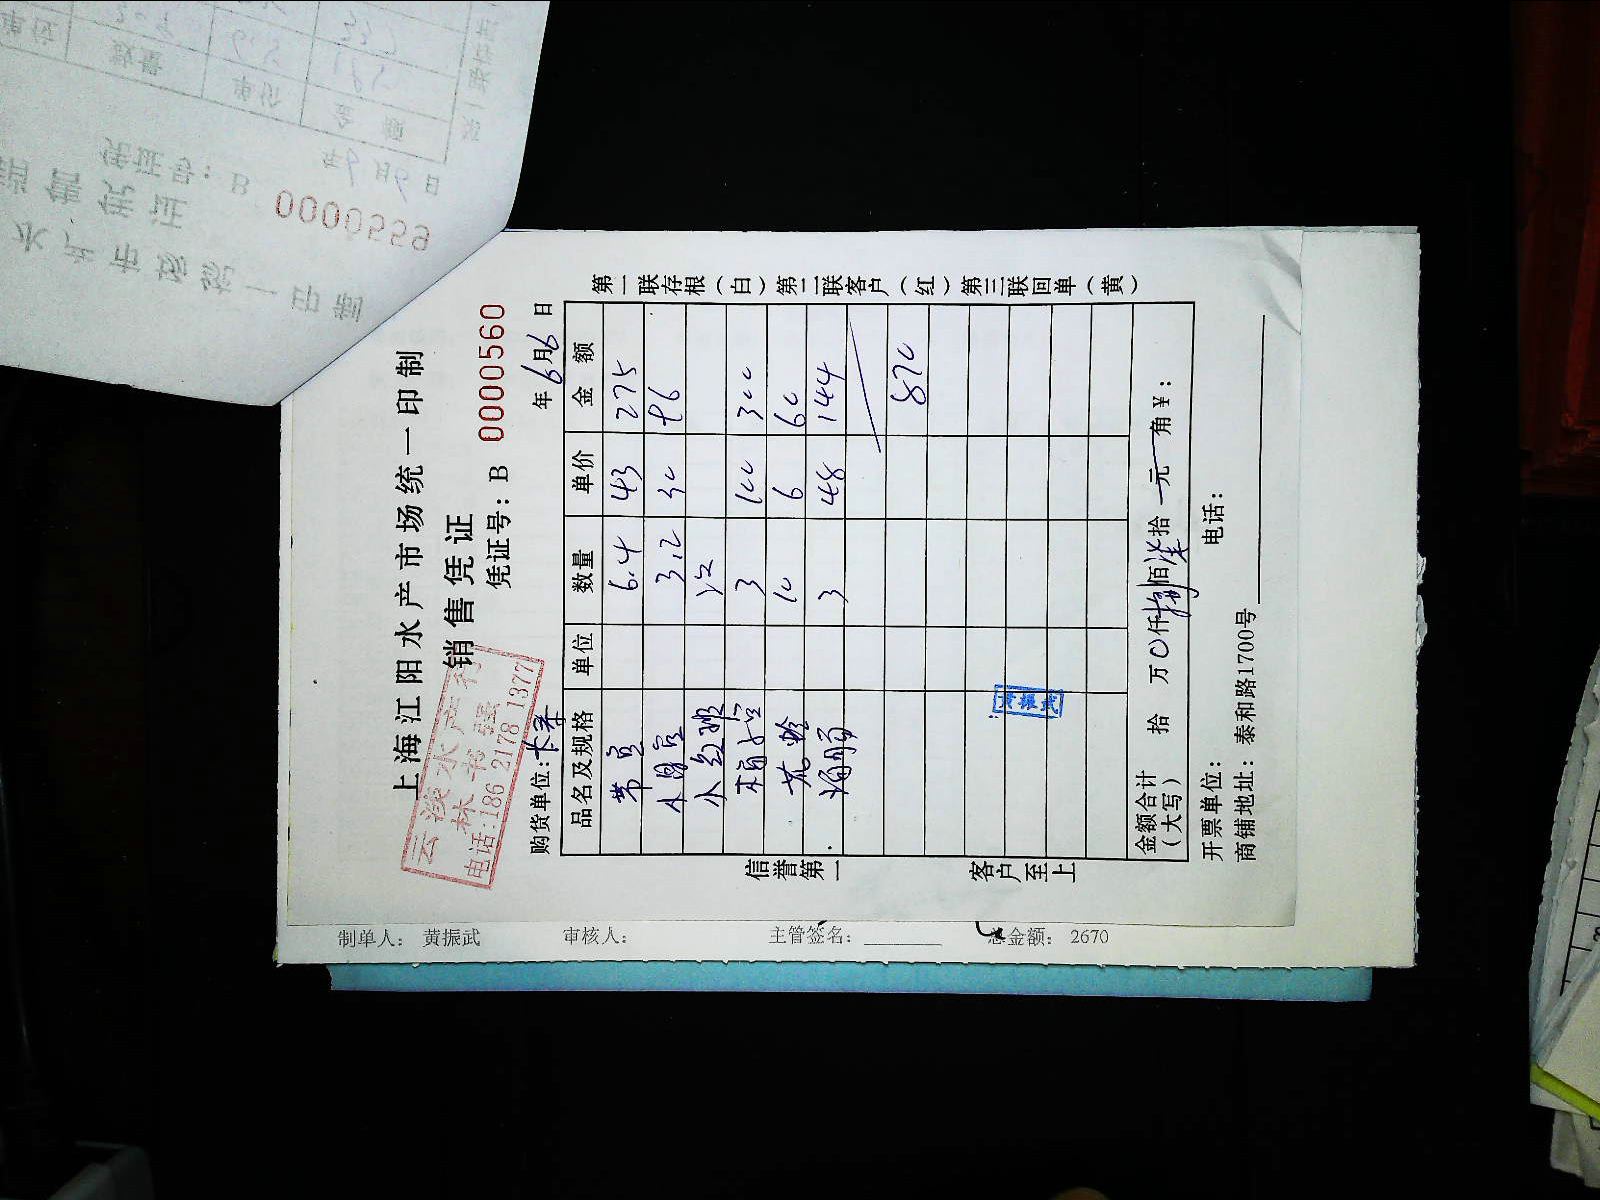 上海江阳水产市场统一印制
销售凭证
凭证号：B 0000560
云溪水产行
林书强
电话:186 2178 1377
购货单位：
年 6月6日
品名及规格 单位 数量 单价 金额
带 6.4 43 275
3.2 30 96
小
3 100 300
花蛤 10 6 60
海肠 3 48 144
870
黄振武
金额合计（大写） 拾 万 0仟捌佰柒拾 元 角￥：
开票单位： 电话：
商铺地址：泰和路1700号
第一联存根（白）第二联客户（红）第三联回单（黄）
信誉第一
客户至上
制单人： 黄振武 审核人： 主管签名： 总金额： 2670
水产市场统一印制
销售凭证
凭证号：B 0000559
年9月9日
单位 数量 单价 金额